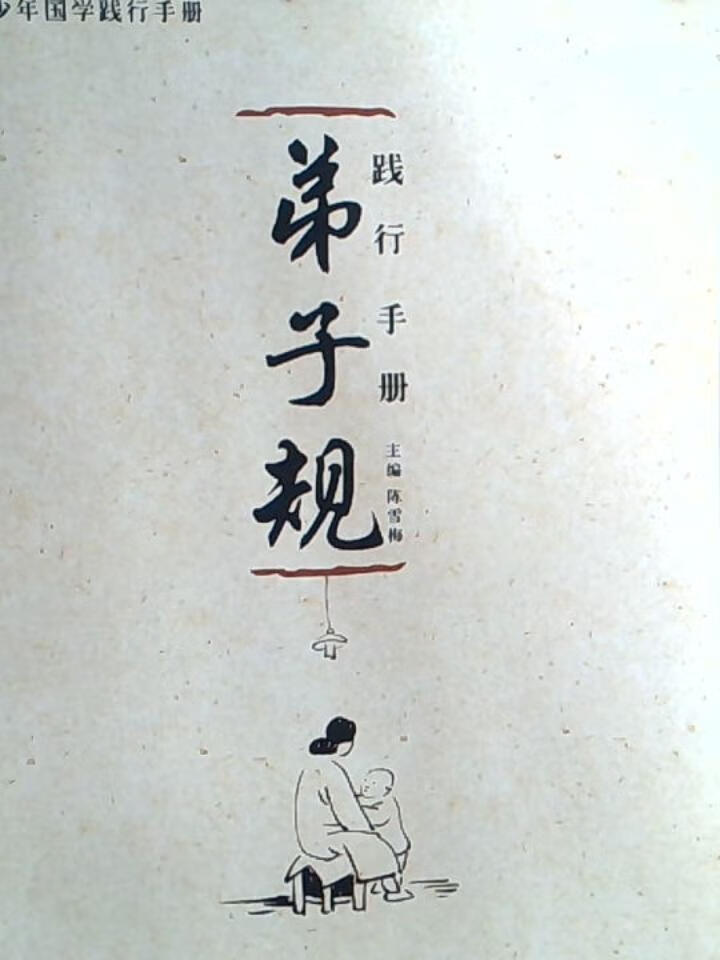 少年国学践行手册
弟子规
践行手册
主编 陈雪梅